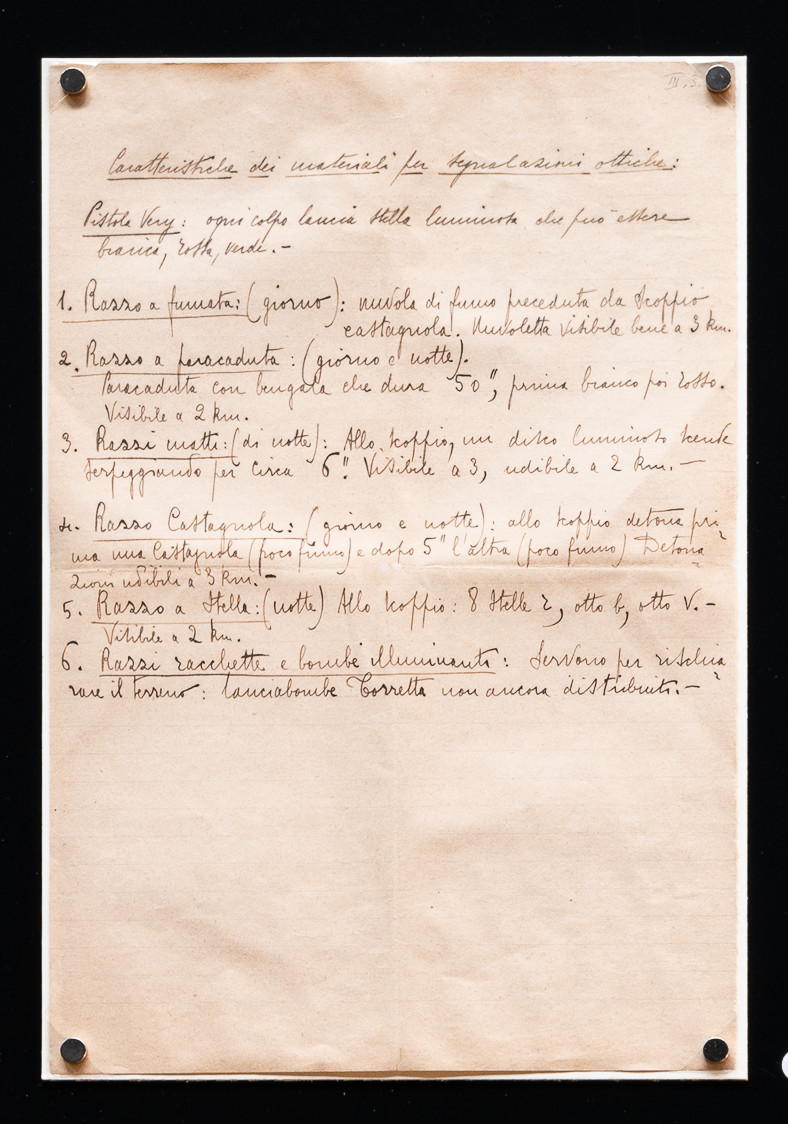 III.3.
Caratteristiche dei materiali per segnalazioni ottiche:
Pistola Very: ogni colpo lancia stella luminosa che può essere
bianca, rossa, verde.-
1. Razzo a fumata: (giorno): nuvola di fumo preceduta da scoppio
castagnola. Nuvoletta visibile bene a 3 km.
2. Razzo a paracaduta: (giorno e notte).
Paracaduta con bengala che dura 50", prima bianco poi rosso.
Visibile a 2 km.
3. Razzi matti: (di notte): Allo scoppio, un disco luminoso scende
serpeggiando per circa 6". Visibile a 3, udibile a 2 km.-
4. Razzo Castagnola: (giorno e notte): allo scoppio detona pri=
ma una Castagnola (poco fumo) e dopo 5" l'altra (poco fumo) Detona=
zioni udibili a 3 km.-
5. Razzo a Stella: (notte) Allo scoppio: 8 stelle r, otto b, otto v.-
Visibile a 2 km.
6. Razzi racchette e bombe illuminanti: servono per rischia=
rare il terreno: lanciabombe Torretta non ancora distribuiti.-